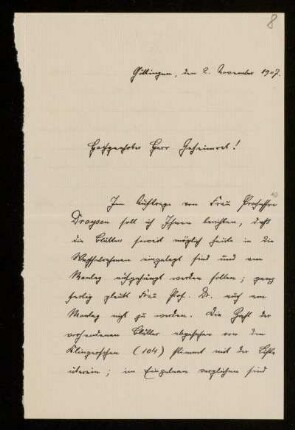 8
Göttingen, den 2. November 1907.
Hochgeehrter Herr Geheimrat!
Im Auftrage von Frau Professor
Droysen soll ich Ihnen berichten, daß
die Blätter soweit möglich heute in die
eingelegt sind und am
Montag aufgehängt werden sollen; ganz
fertig glaubt Frau Prof. Dr. auch am
Montag nicht zu werden. Die Zahl der
vorhandenen Blätter abgesehen von den
Klingerschen (104) stimmt mit der Liste
überein; im Einzelnen verglichen sind